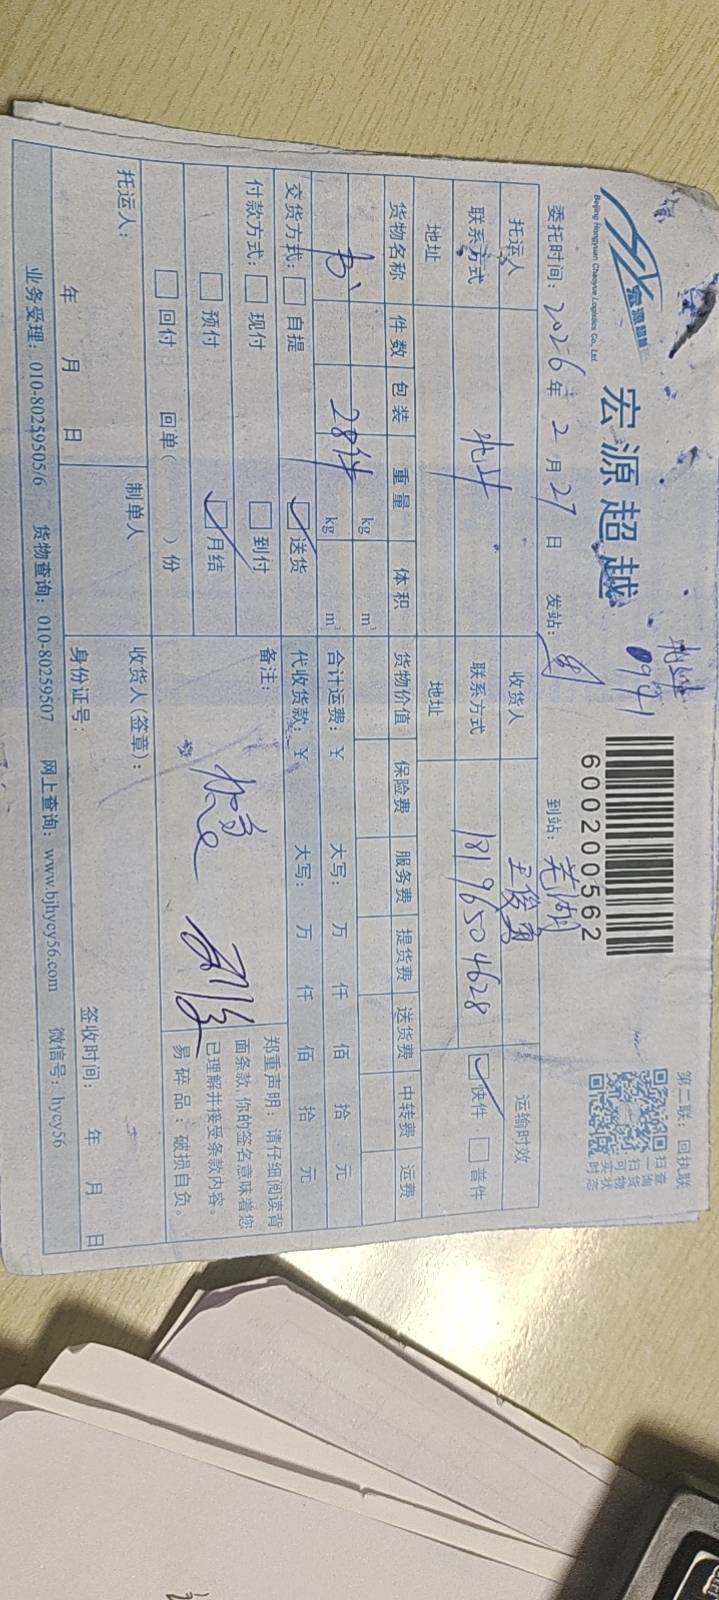 宏源超越
Beijing Hongyuan Chaoyue Logistics Co., Ltd.
宏源超越
0971
600200562
第二联：回执联
扫一扫可实时
查询货物状态
委托时间：2026年2月27日 发站： 到站：芜湖
托运人 收货人 王俊勇 运输时效
联系方式 联系方式 18196504628 快件 普件
地址 地址
货物名称 件数 包装 重量 体积 货物价值 保险费 服务费 提货费 送货费 中转费 运费
kg m³
书 28件 kg m³ 合计运费：￥ 大写： 万 仟 佰 拾 元
交货方式： 自提 送货 代收货款：￥ 大写： 万 仟 佰 拾 元
付款方式： 现付 到付 备注：
预付 月结
回付 回单（ ）份
郑重声明：请仔细阅读背
面条款，你的签名意味着您
已理解并接受条款内容。
易碎品：破损自负。
托运人： 制单人 收货人（签章）：
年 月 日 身份证号： 签收时间： 年 月 日
业务受理：010-80259505/6 货物查询：010-80259507 网上查询：www.bjhycy56.com 微信号：hycy56